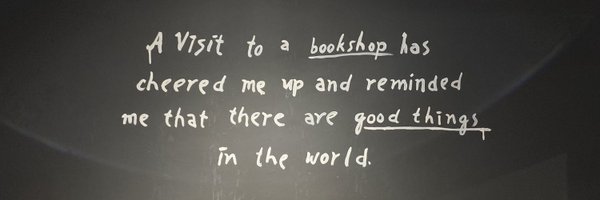 A Visit to a bookshop has
cheered me up and reminded
me that there are good things
in the world.